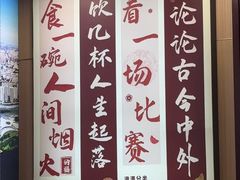 食一碗人间烟火
饮几杯人生起落
看一场比赛
论论古今中外